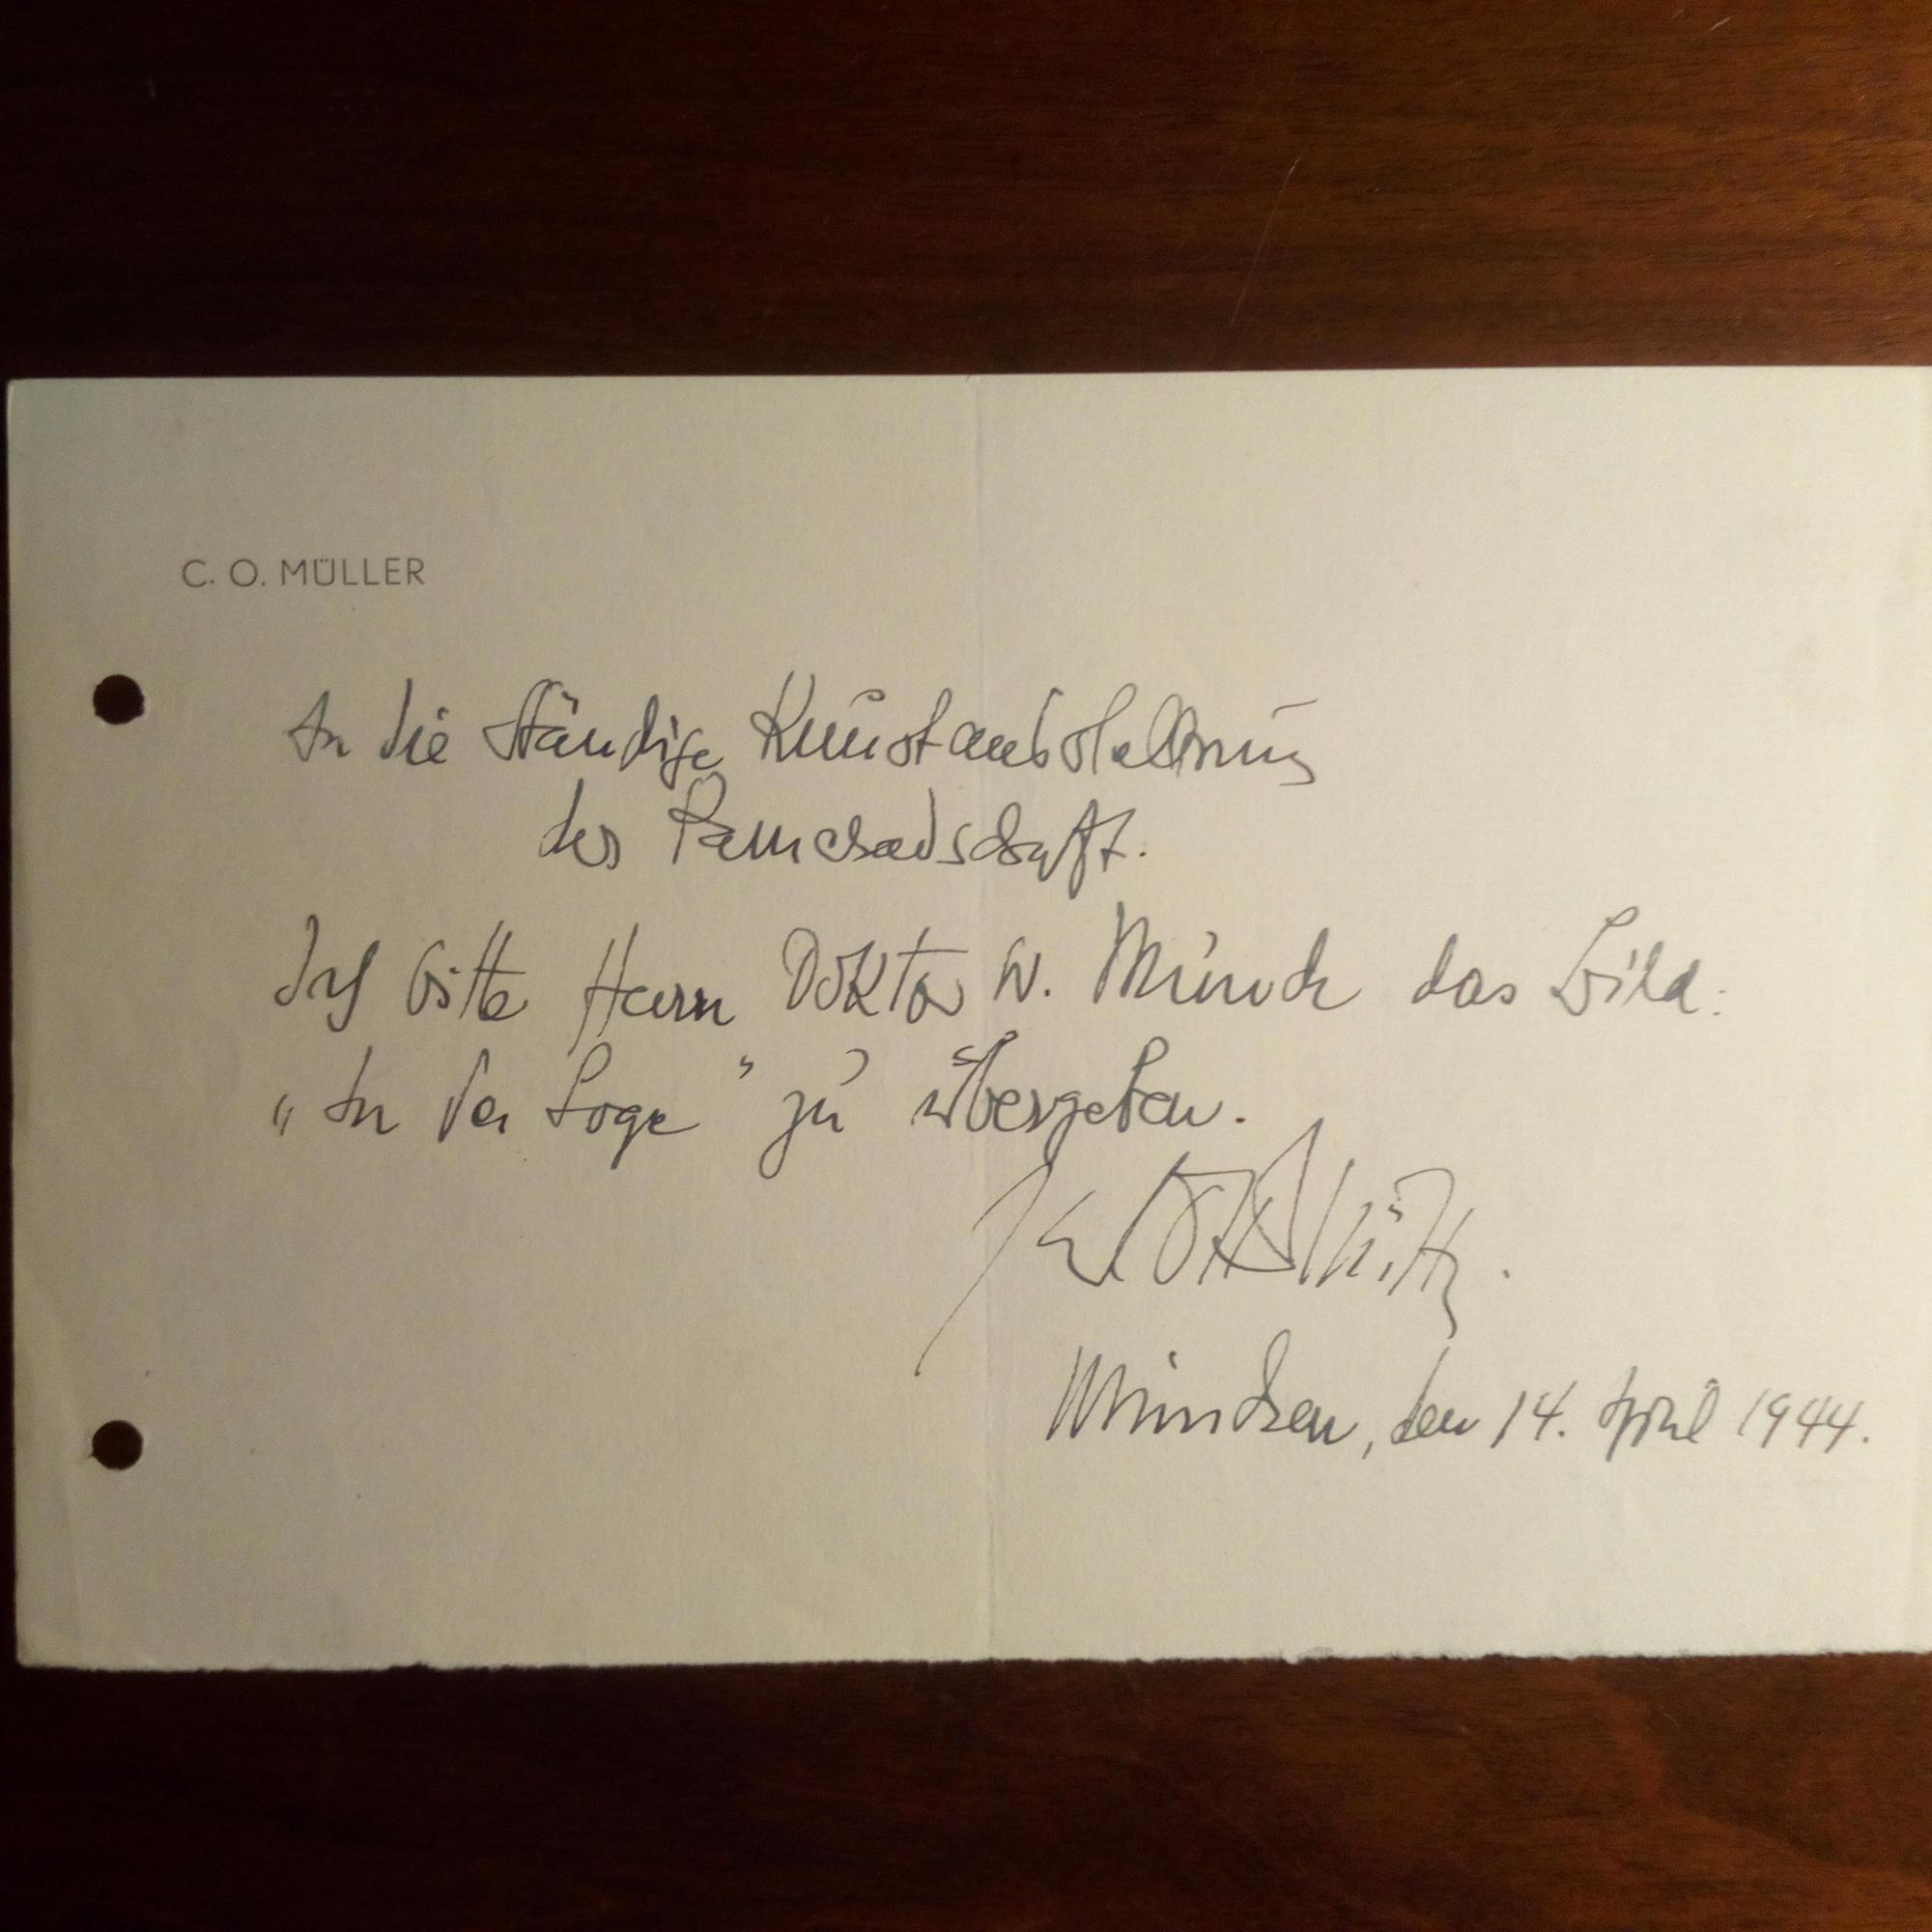 C. O. MÜLLER
An die Ständige Kunstausstellung
der Kameradschaft.
Ich bitte Herrn Doktor W. Münch das Bild:
„In der Loge" zu übergeben.
München, den 14. April 1944.